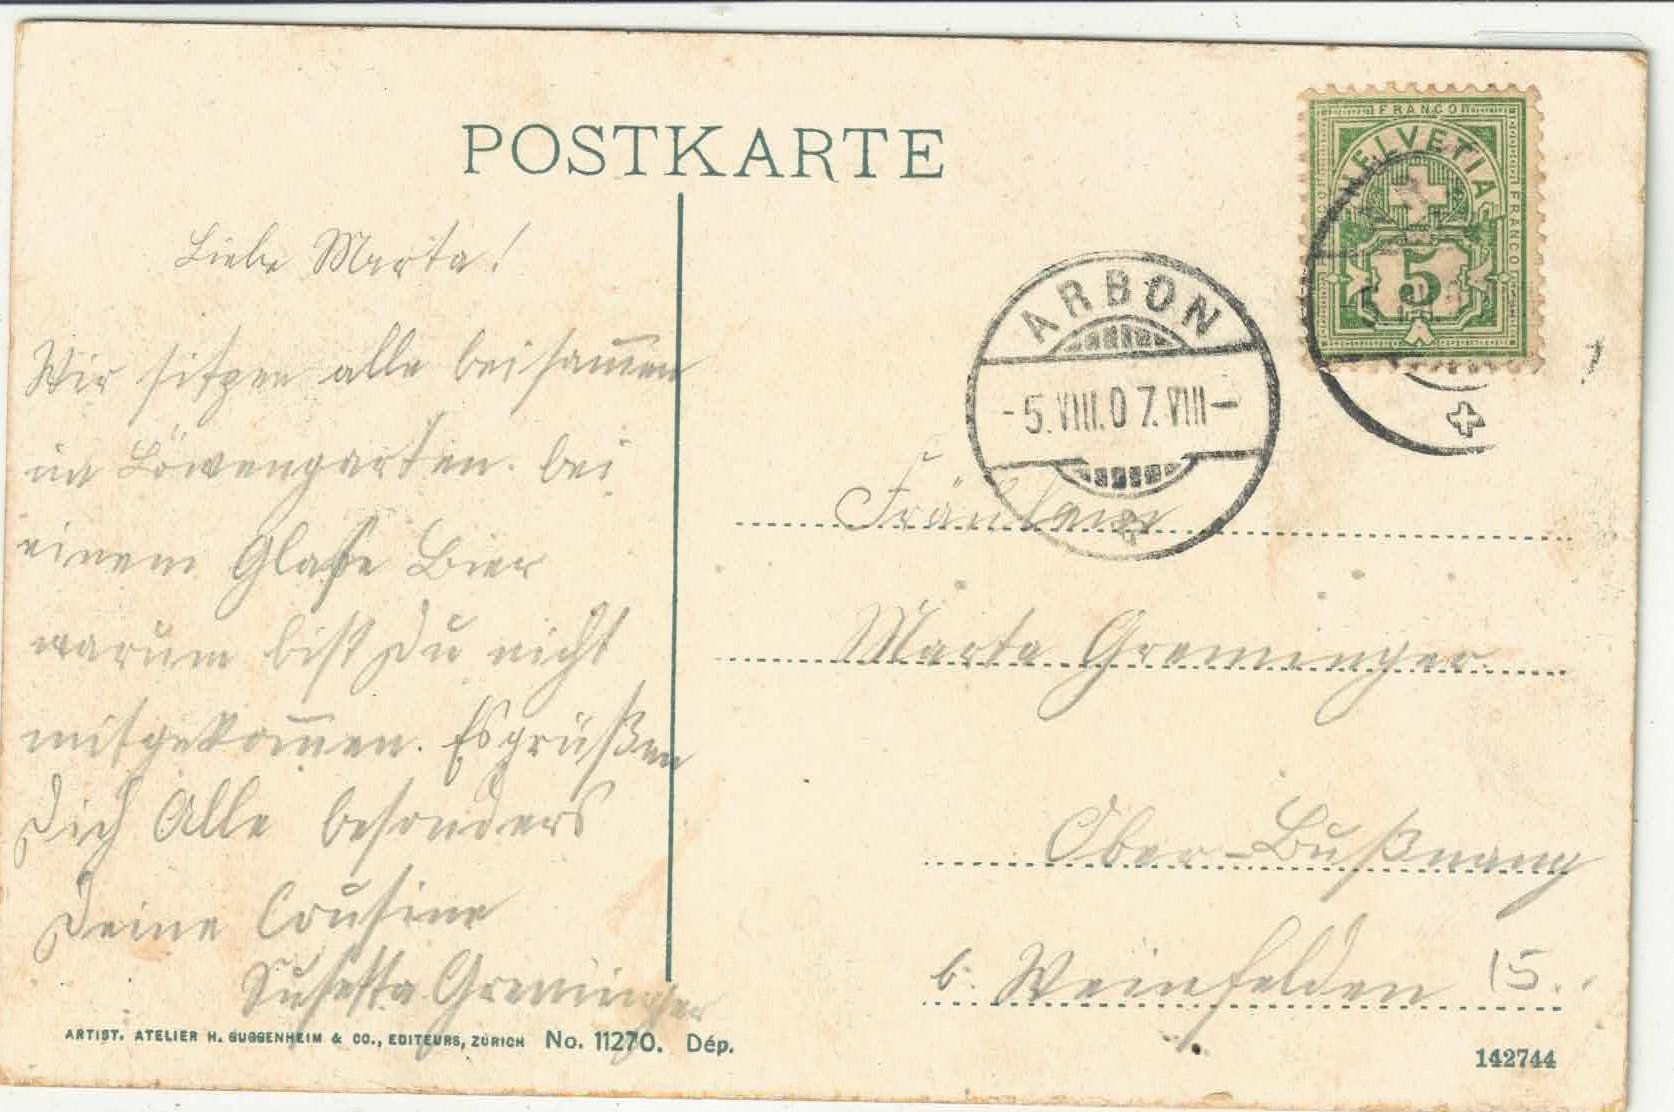 POSTKARTE
FRANCO
HELVETIA
FRANCO
5
ARBON
-5.VIII.07.VIII-
Liebe Marta!
Wir sitzen alle beisam̅en
im Löwengarten. bei
einem Glase Bier
warum bist Du nicht
mitgekom̅en. Es grüßen
Dich Alle besonders
Deine Cousine
Susetta Greminger
Fräulein
Marta Greminger.
Ober-Bußnang
b. Weinfelden 15.
ARTIST. ATELIER H. GUGGENHEIM & CO., EDITEURS, ZÜRICH No. 11270. Dép.
142744